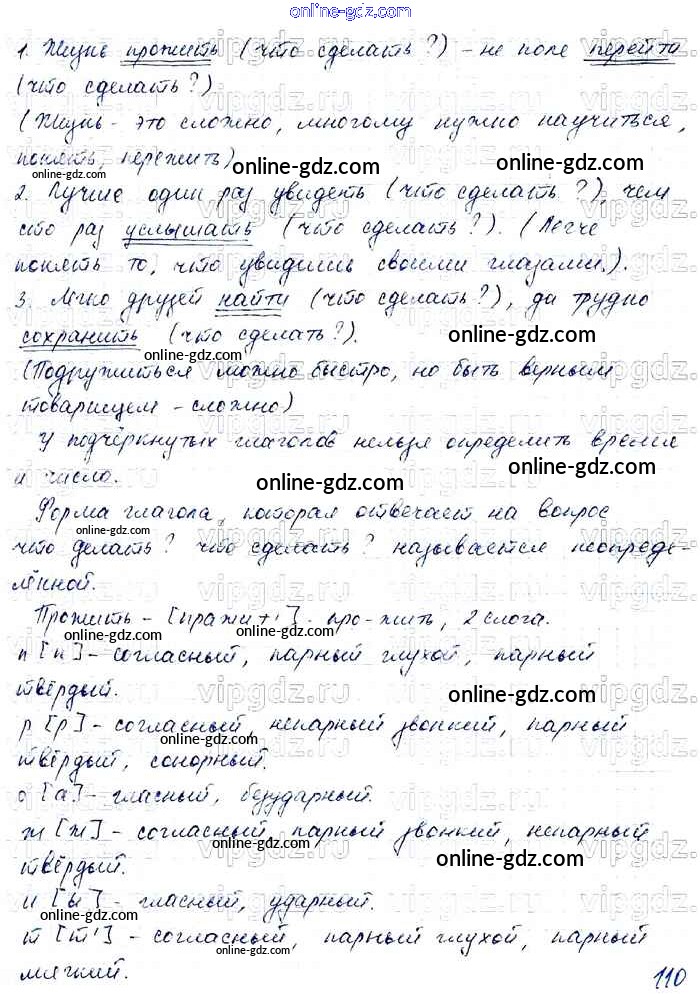 online-gdz.com
1. Жизнь прожить (что сделать?) - не поле перейти
(что сделать?)
(Жизнь - это сложно, многому нужно научиться,
понять, пережить)
online-gdz.com
2. Лучше один раз увидеть (что сделать?), чем
сто раз услышать (что сделать?). (Легче
online-gdz.com
понять то, что увидишь своими глазами.).
3. Легко друзей найти (что сделать?), да трудно
сохранить (что сделать?).
online-gdz.com
online-gdz.com
(Подружиться можно быстро, но быть верным
товарищем - сложно)
У подчёркнутых глаголов нельзя определить время
и число.
online-gdz.com
Форма глагола, которая отвечает на вопрос
online-gdz.com
что делать? что сделать? называется неопреде-
лённой.
online-gdz.com
Прожить - [пражыт'] про-жить, 2 слога.
online-gdz.com
п [п] - согласный, парный глухой, парный
твёрдый.
online-gdz.com
р [р] - согласный, непарный звонкий, парный
твёрдый, сонорный.
online-gdz.com
о [а] - гласный, безударный.
ж [ж] - согласный, парный звонкий, непарный
твёрдый.
online-gdz.com
и [ы] - гласный, ударный.
online-gdz.com
т [т'] - согласный, парный глухой, парный
мягкий.
110
vipgdz.ru